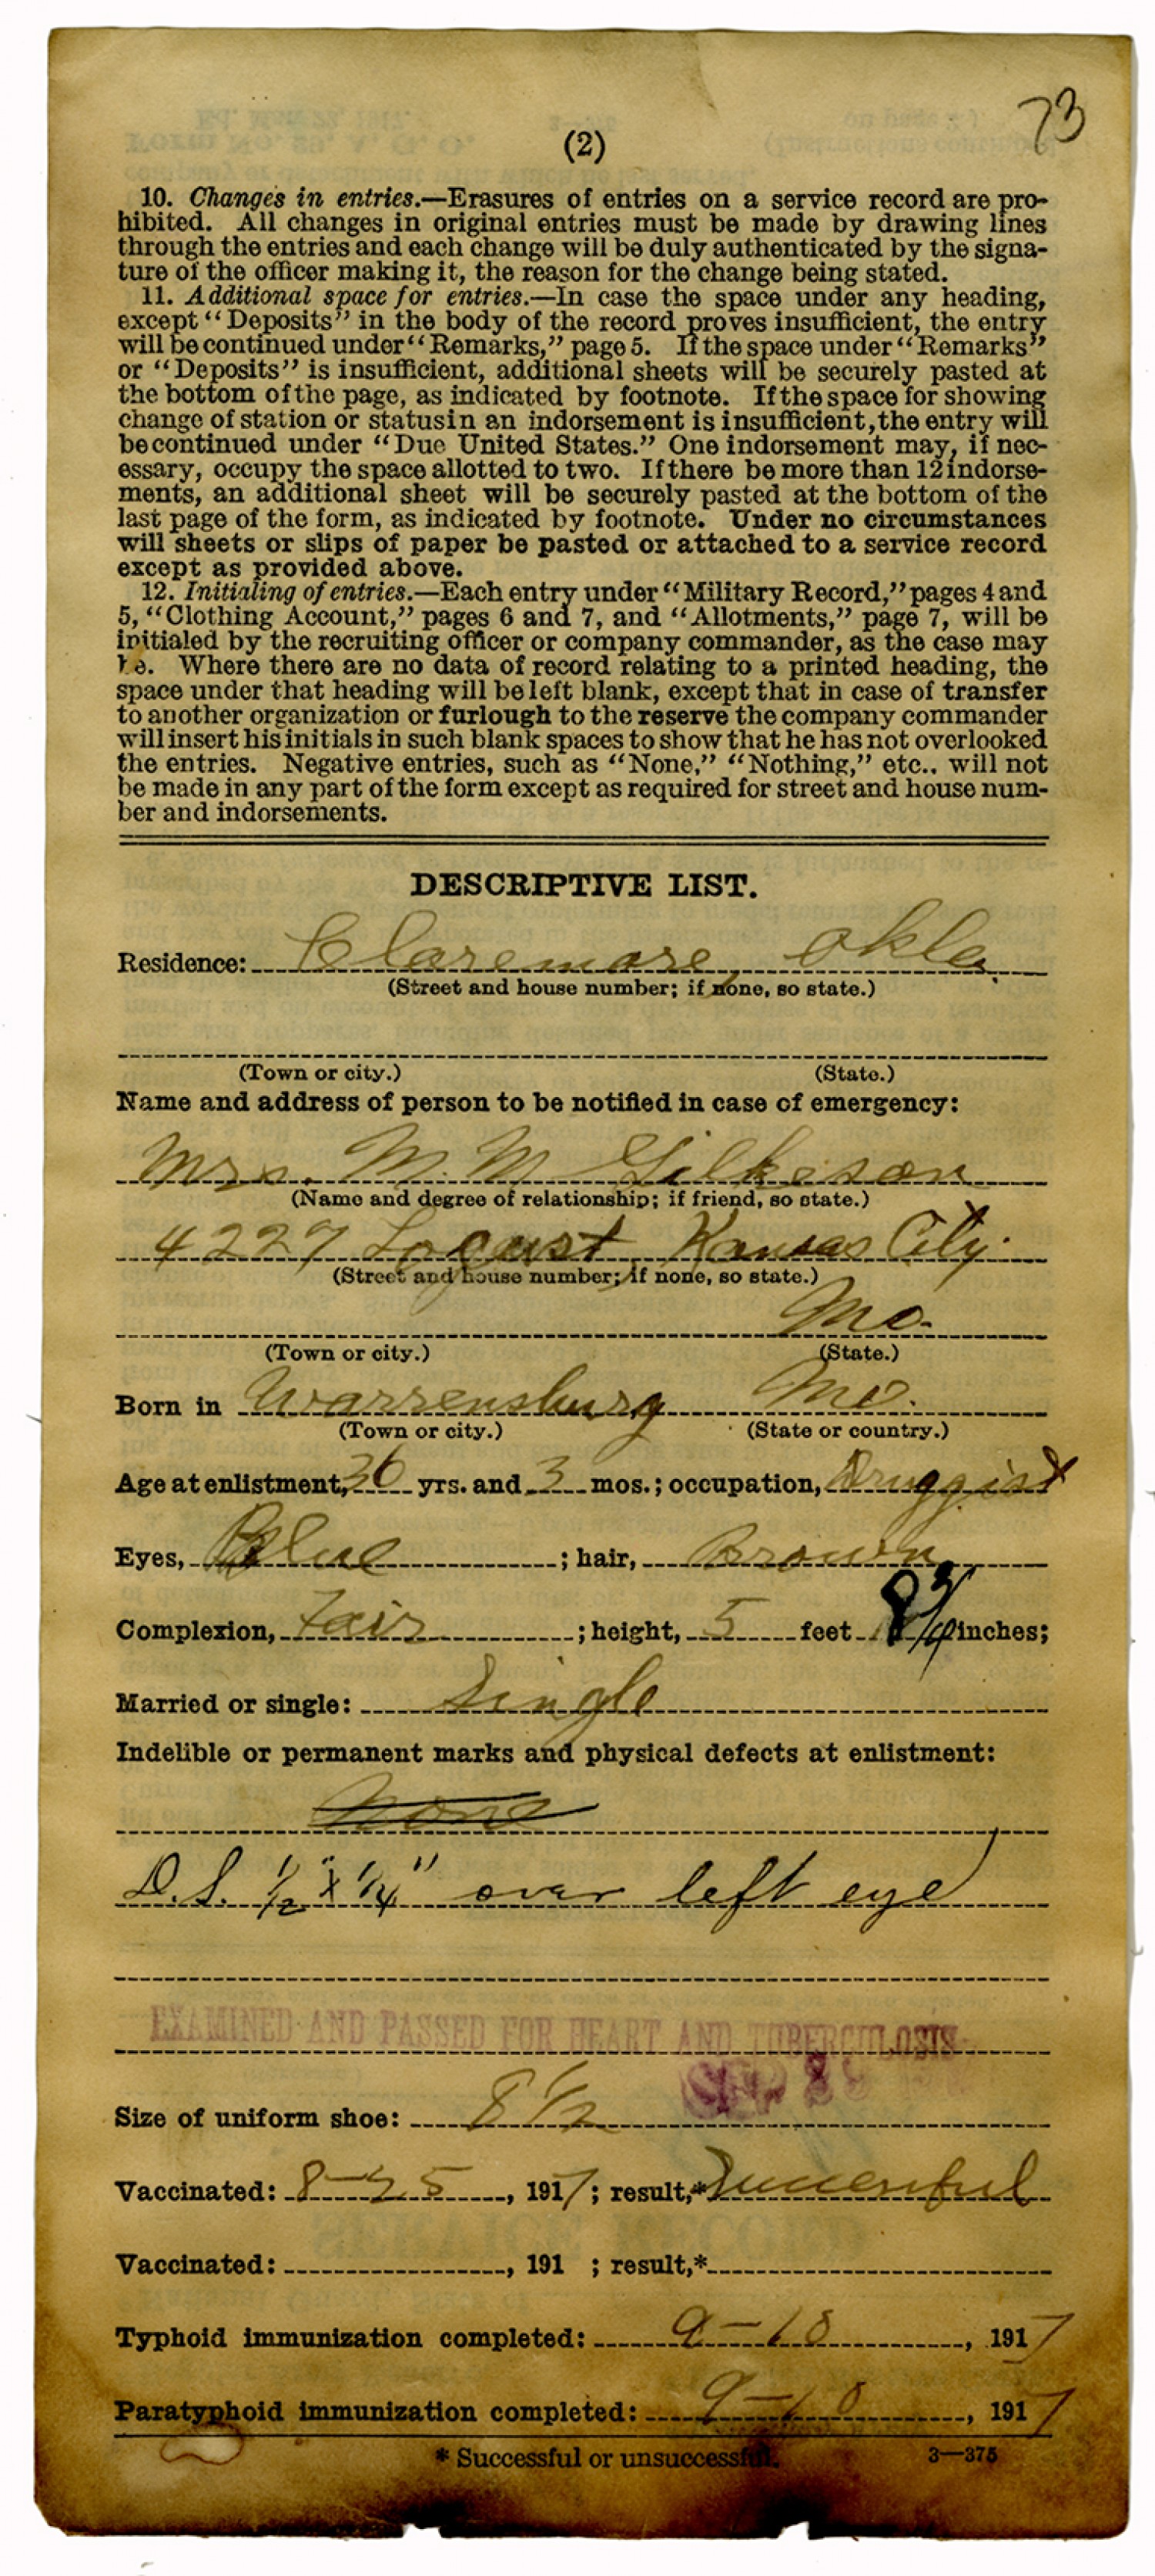 73
(2)
10. Changes in entries.—Erasures of entries on a service record are pro-
hibited. All changes in original entries must be made by drawing lines
through the entries and each change will be duly authenticated by the signa-
ture of the officer making it, the reason for the change being stated.
11. Additional space for entries.—In case the space under any heading,
except "Deposits" in the body of the record proves insufficient, the entry
will be continued under "Remarks," page 5. If the space under "Remarks"
or "Deposits" is insufficient, additional sheets will be securely pasted at
the bottom of the page, as indicated by footnote. If the space for showing
change of station or status in an indorsement is insufficient, the entry will
be continued under "Due United States." One indorsement may, if nec-
essary, occupy the space allotted to two. If there be more than 12 indorse-
ments, an additional sheet will be securely pasted at the bottom of the
last page of the form, as indicated by footnote. Under no circumstances
will sheets or slips of paper be pasted or attached to a service record
except as provided above.
12. Initialing of entries.—Each entry under "Military Record," pages 4 and
5, "Clothing Account," pages 6 and 7, and "Allotments," page 7, will be
initialed by the recruiting officer or company commander, as the case may
be. Where there are no data of record relating to a printed heading, the
space under that heading will be left blank, except that in case of transfer
to another organization or furlough to the reserve the company commander
will insert his initials in such blank spaces to show that he has not overlooked
the entries. Negative entries, such as "None," "Nothing," etc., will not
be made in any part of the form except as required for street and house num-
ber and indorsements.
DESCRIPTIVE LIST.
Residence: Claremore, Okla.
(Street and house number; if none, so state.)
(Town or city.) (State.)
Name and address of person to be notified in case of emergency:
Mrs. M. M Gilkeson
(Name and degree of relationship; if friend, so state.)
4227 Locust, Kansas City
(Street and house number; if none, so state.)
Mo.
(Town or city.) (State.)
Born in Warrensburg Mo.
(Town or city.) (State or country.)
Age at enlistment, 36 yrs. and 3 mos.; occupation, Druggist
Eyes, Blue ; hair, Brown
Complexion, Fair ; height, 5 feet 8 3/4 inches;
Married or single: Single
Indelible or permanent marks and physical defects at enlistment:
None
D.S. 1/2" x 1/4" over left eye
EXAMINED AND PASSED FOR HEART AND TUBERCULOSIS
SEP 29
Size of uniform shoe: 8 1/2
Vaccinated: 8-25, 1917; result,* Successful
Vaccinated: , 191 ; result,*
Typhoid immunization completed: 9-18, 1917
Paratyphoid immunization completed: 9-18, 1917
* Successful or unsuccessful. 3—375